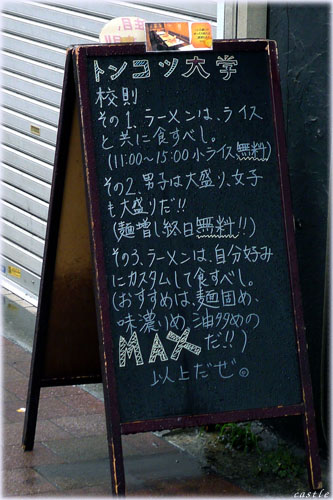 トンコツ大学
校則
その1.ラーメンは、ライス
と共に食すべし。
(11:00〜15:00小ライス無料)
その2.男子は大盛り、女子
も大盛りだ!!
(麺増し終日無料!!)
その3.ラーメンは、自分好み
にカスタムして食すべし。
(おすすめは、麺固め、
味濃いめ、油多めの
MAXだ!!)
以上だぜ。
castle